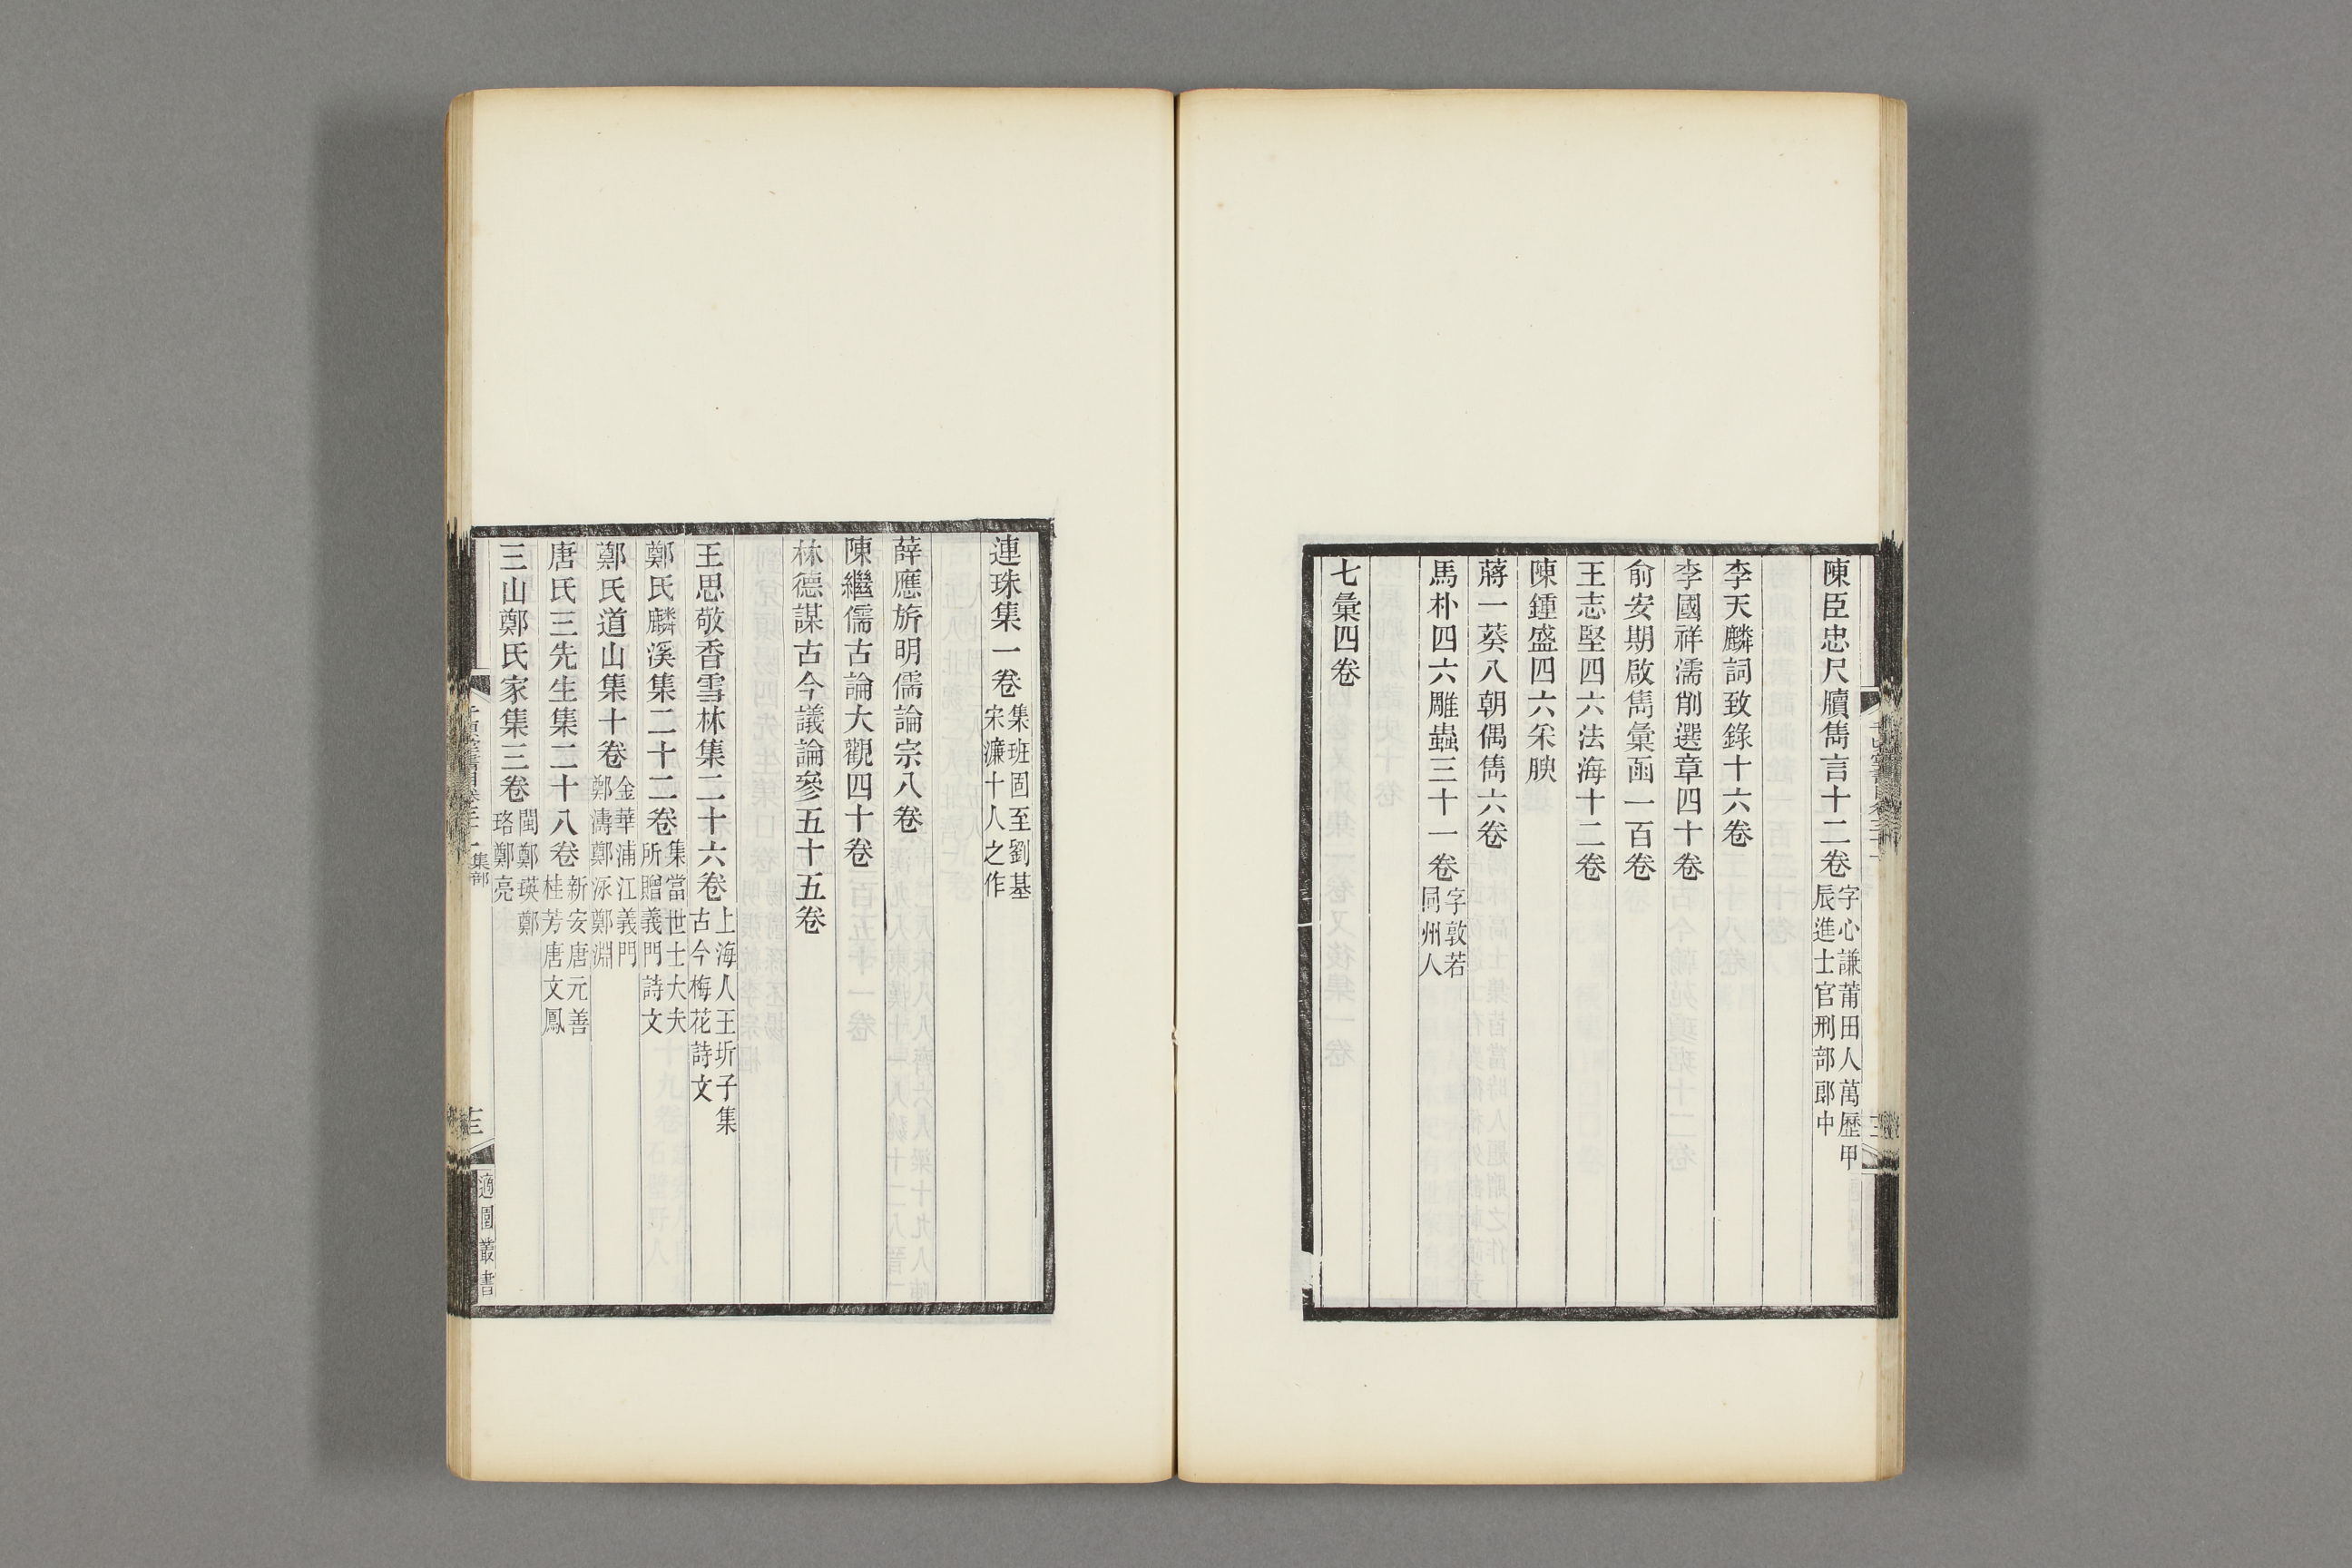 陳臣忠尺牘雋言十二卷字心謙莆田人萬歷甲
辰進士官刑部郎中
李天麟詞致錄十六卷
李國祥濡削選章四十卷
俞安期啟雋彙函一百卷
王志堅四六法海十二卷
陳鍾盛四六采腴
蔣一葵八朝偶雋六卷
馬朴四六雕蟲三十一卷字敦若
同州人
七彙四卷
連珠集一卷集班固至劉基
宋濂十人之作
薛應旂明儒論宗八卷
陳繼儒古論大觀四十卷
林德謀古今議論參五十五卷
王思敬香雪林集二十六卷上海人王圻子集
古今梅花詩文
鄭氏麟溪集二十二卷集當世士大夫
所贈義門詩文
鄭氏道山集十卷金華浦江義門
鄭濤鄭泳鄭淵
唐氏三先生集二十八卷新安唐元善
桂芳唐文鳳
三山鄭氏家集三卷閩鄭瑛鄭
珞鄭亮
集部
適園叢書